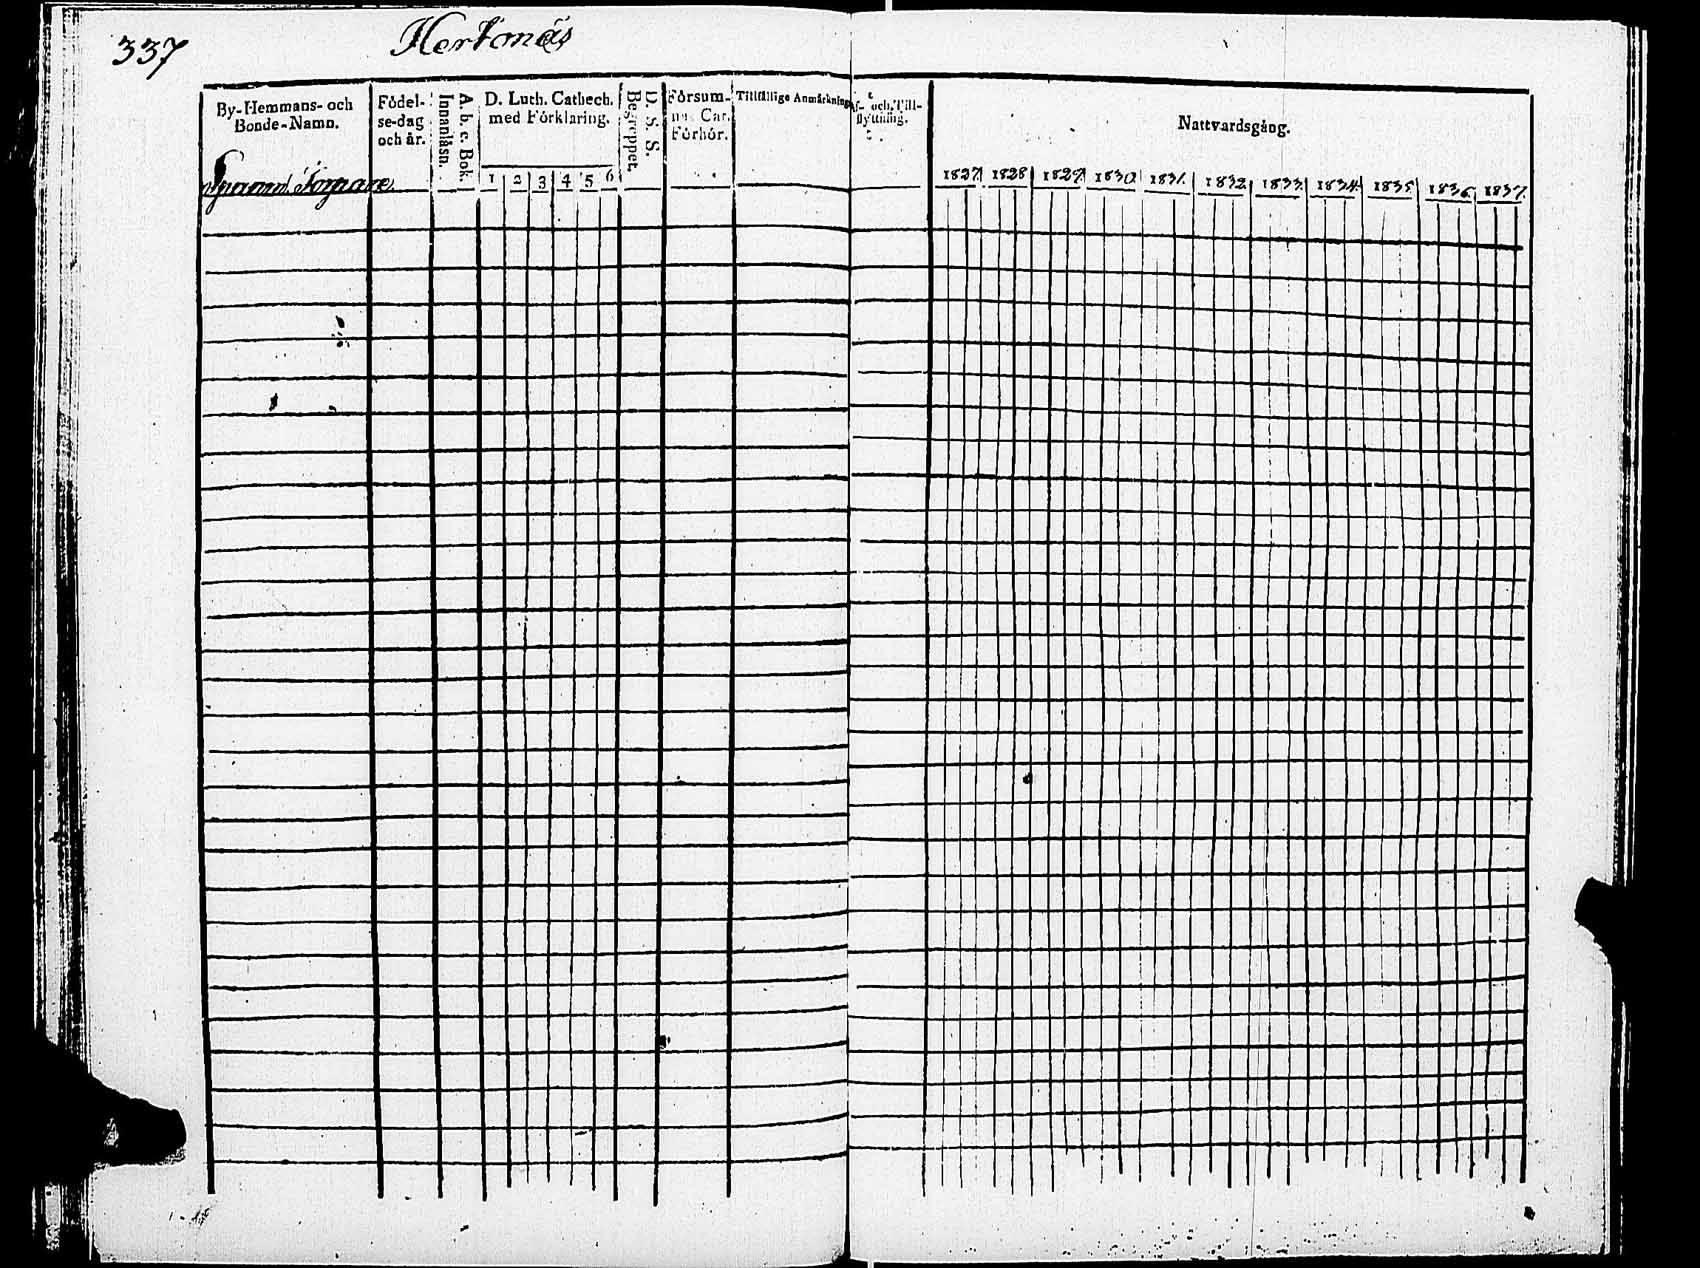 337
Hertonäs
By-Hemmans- och
Bonde-Namn.
Födel-
se-dag
och år.
A. b. c. Bok.
Innanläsn.
D. Luth. Cathech.
med Förklaring.
1 2 3 4 5 6
D. S. S.
Begreppet.
Försum-
Cat.
Förhör.
Tillfällige Anmärkning
Af- och Till-
flyttning.
Nattvardsgång.
1827. 1828. 1829. 1830. 1831. 1832. 1833. 1834. 1835. 1836. 1837.
Torpare